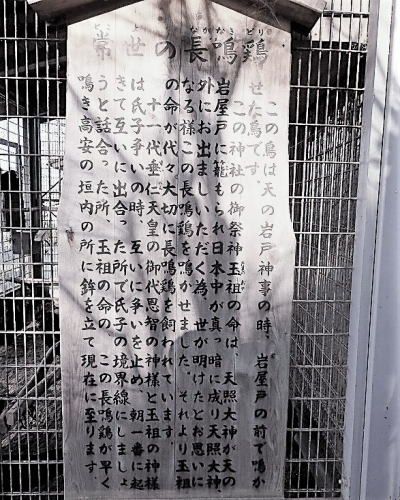 常世の長鳴鶏
とこ よ なかなき どり
この鳥は天の岩戸神事の時、岩屋戸の前で鳴か
せた鳥です。
この神社の御祭神玉祖の命は、天照大神が天の
岩屋戸に籠もられ日本中が真っ暗に成り天照大神、
外にお出ましいただく為、世が明けたとお思いに
なる様この長鳴鶏を鳴かせました。それより玉祖
の命が代々大切に長鳴鶏を飼われています
十一代垂仁天皇の御代恩智の神様と玉祖の神様
は氏子争いの時、互いに争いを止め、朝一番に起
きて互いに出合った所で氏子の境界線にしましょ
うと話合った所、玉祖の命の、この長鳴鶏が早く
鳴き高安の垣内の所に鉾を立て現在に至ります。